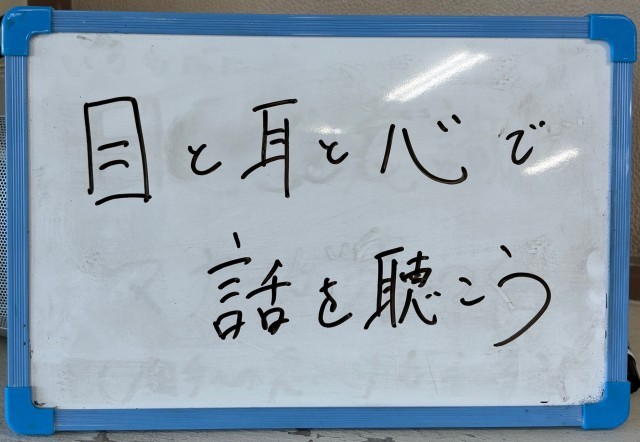 目と耳と心で
話を聴こう